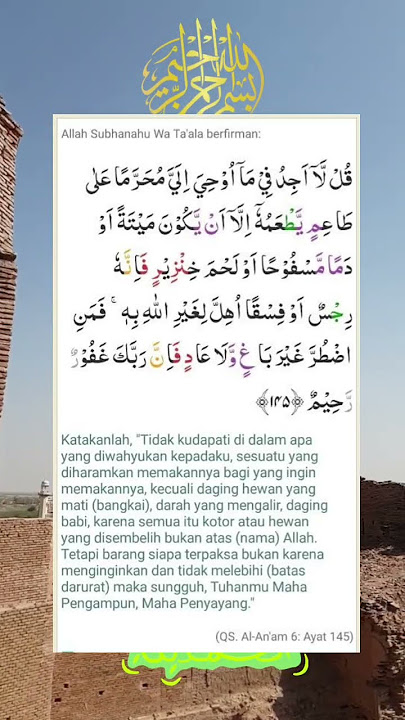 بسم الله الرحمن الرحيم
Allah Subhanahu Wa Ta'ala berfirman:
قُلْ لَّآ اَجِدُ فِيْ مَآ اُوْحِيَ اِلَيَّ مُحَرَّمًا عَلٰى
طَاعِمٍ يَّطْعَمُهٗٓ اِلَّآ اَنْ يَّكُوْنَ مَيْتَةً اَوْ
دَمًا مَّسْفُوْحًا اَوْ لَحْمَ خِنْزِيْرٍ فَاِنَّهٗ
رِجْسٌ اَوْ فِسْقًا اُهِلَّ لِغَيْرِ اللّٰهِ بِهٖ ۚ فَمَنِ
اضْطُرَّ غَيْرَ بَاغٍ وَّلَا عَادٍ فَاِنَّ رَبَّكَ غَفُوْرٌ
رَّحِيْمٌ ﴿١٤٥﴾
Katakanlah, "Tidak kudapati di dalam apa
yang diwahyukan kepadaku, sesuatu yang
diharamkan memakannya bagi yang ingin
memakannya, kecuali daging hewan yang
mati (bangkai), darah yang mengalir, daging
babi, karena semua itu kotor atau hewan
yang disembelih bukan atas (nama) Allah.
Tetapi barang siapa terpaksa bukan karena
menginginkan dan tidak melebihi (batas
darurat) maka sungguh, Tuhanmu Maha
Pengampun, Maha Penyayang."
(QS. Al-An'am 6: Ayat 145)